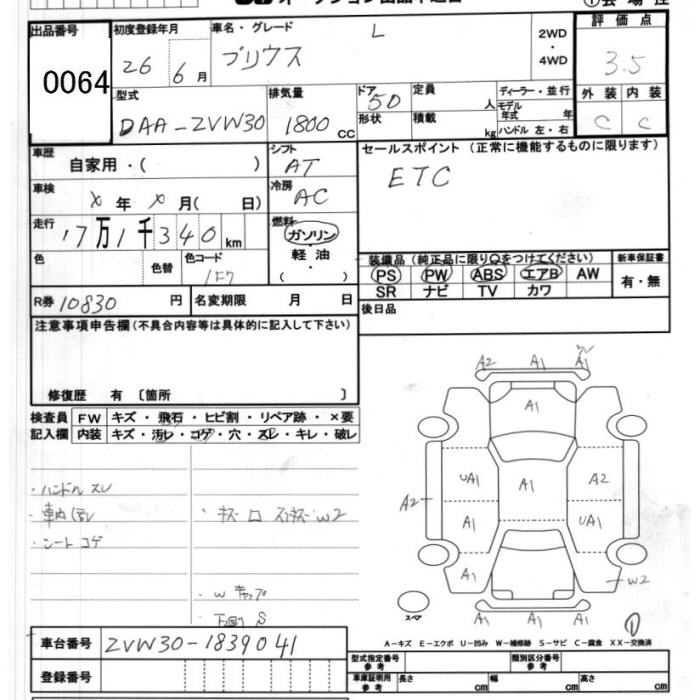 出品番号
0064
初度登録年月
26 6月
車名・グレード
プリウス L
2WD
・
4WD
評価点
3.5
外装 内装
C C
型式
DAA-ZVW30
排気量
1800 CC
ドア
5D
形状
定員
人
積載
kg
ディーラー・並行
モデル
年式 年
ハンドル 左・右
車歴
自家用・( )
シフト
AT
セールスポイント (正常に機能するものに限ります)
ETC
車検
X 年 X 月( 日)
冷房
AC
走行
17万1千340km
燃料
ガソリン
・
軽油
( )
色
色替
色コード
1F7
装備品 (純正品に限り○をつけてください)
PS PW ABS エアB AW
SR ナビ TV カワ
新車保証書
有・無
R券 10830 円
名変期限 月 日
後日品
注意事項申告欄(不具合内容等は具体的に記入して下さい)
修復歴 有 〔箇所 〕
検査員
記入欄
FW キズ・飛石・ヒビ割・リペア跡・×要
内装 キズ・汚レ・コゲ・穴・スレ・キレ・破レ
・ハンドル スレ
・シート コゲ
・Wキャップ
下回り S
A2 A1 A1
A1
UA1 A1 A2
A2
A1 UA1
A1
W2
A1 A1 A1
スペア
①
A-キズ E-エクボ U-凹み W-補修跡 S-サビ C-腐食 XX-交換済
車台番号 ZVW30-1839041
登録番号
型式指定番号
参考
類別区分番号
参考
車庫証明用
参考
長さ cm
幅 cm
高さ cm